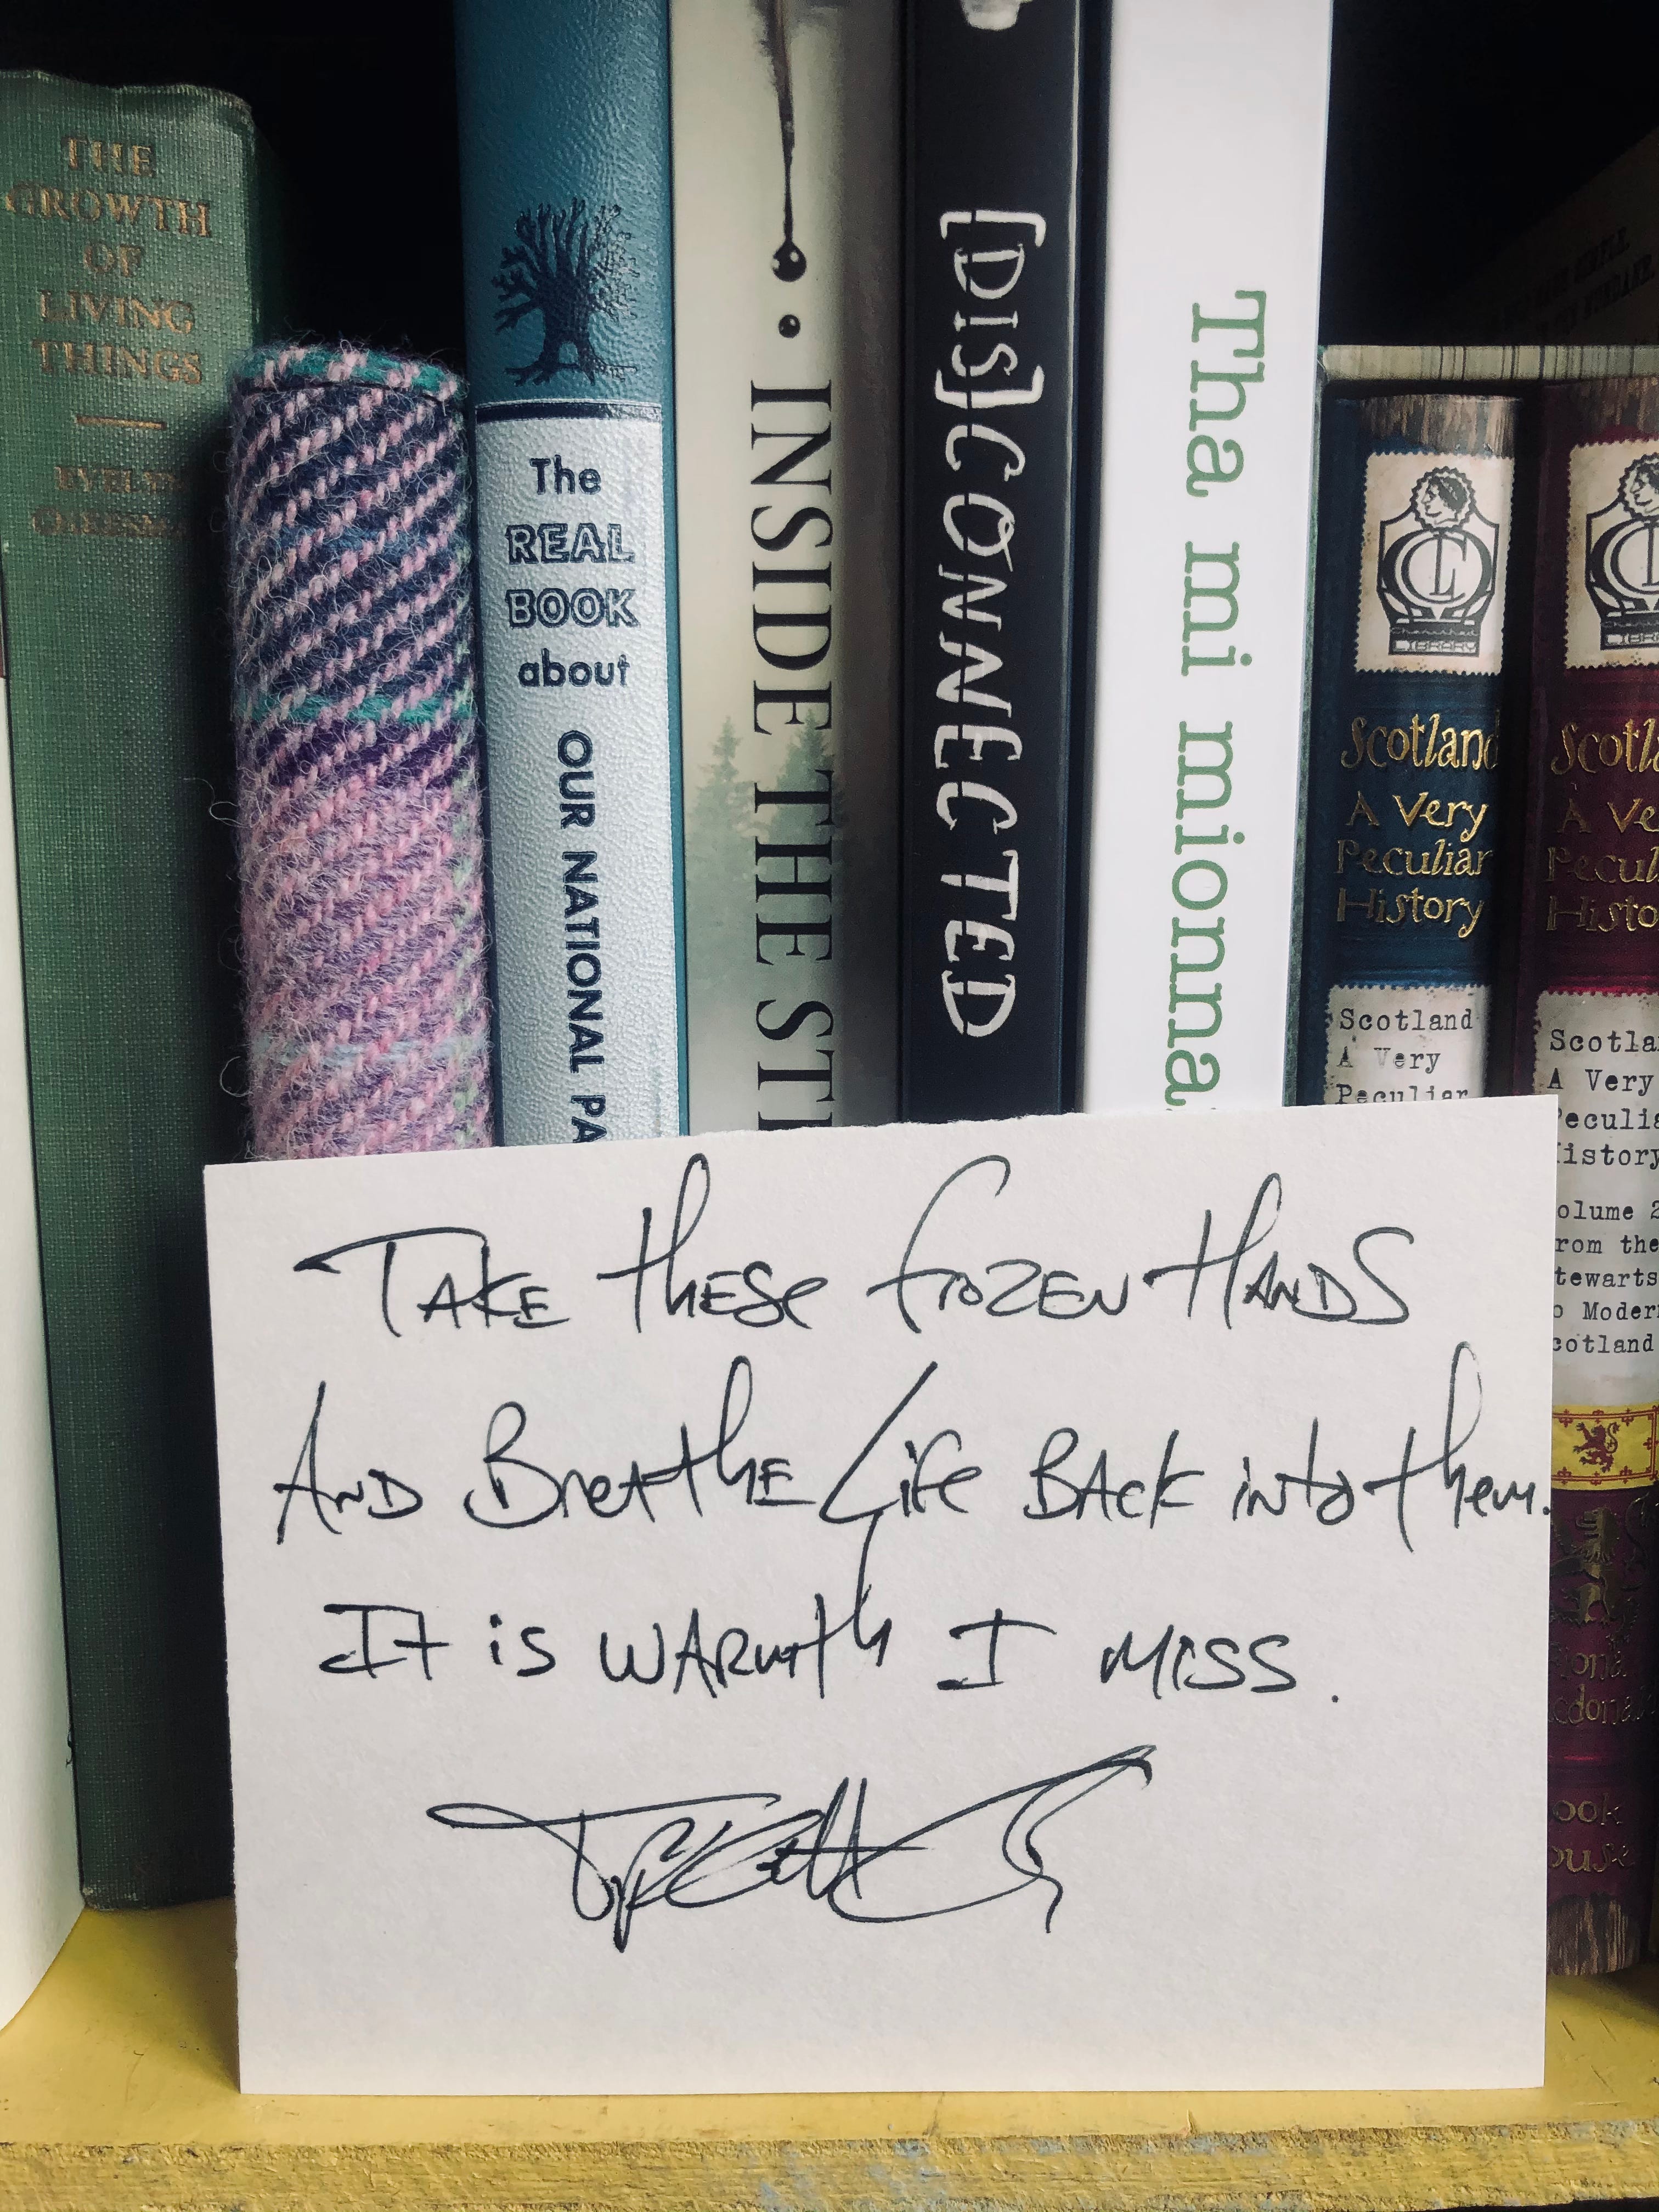 THE
GROWTH
OF
LIVING
THINGS
The
REAL
BOOK
about
OUR NATIONAL PA
INSIDE THE
[DIS]CONNECTED
Tha mi mionna
CL
LIBRARY
Scotland
A Very
Peculiar
History
Scotland
A Very
Peculiar
Scotl
A Ve
Pecul
Histo
Scotla
A Very
Peculia
istory
olume 2
rom the
tewarts
o Moder
cotland
TAKE these frozen HANDS
AND BreatHE Life BACK into them.
It is WARmth I miss.